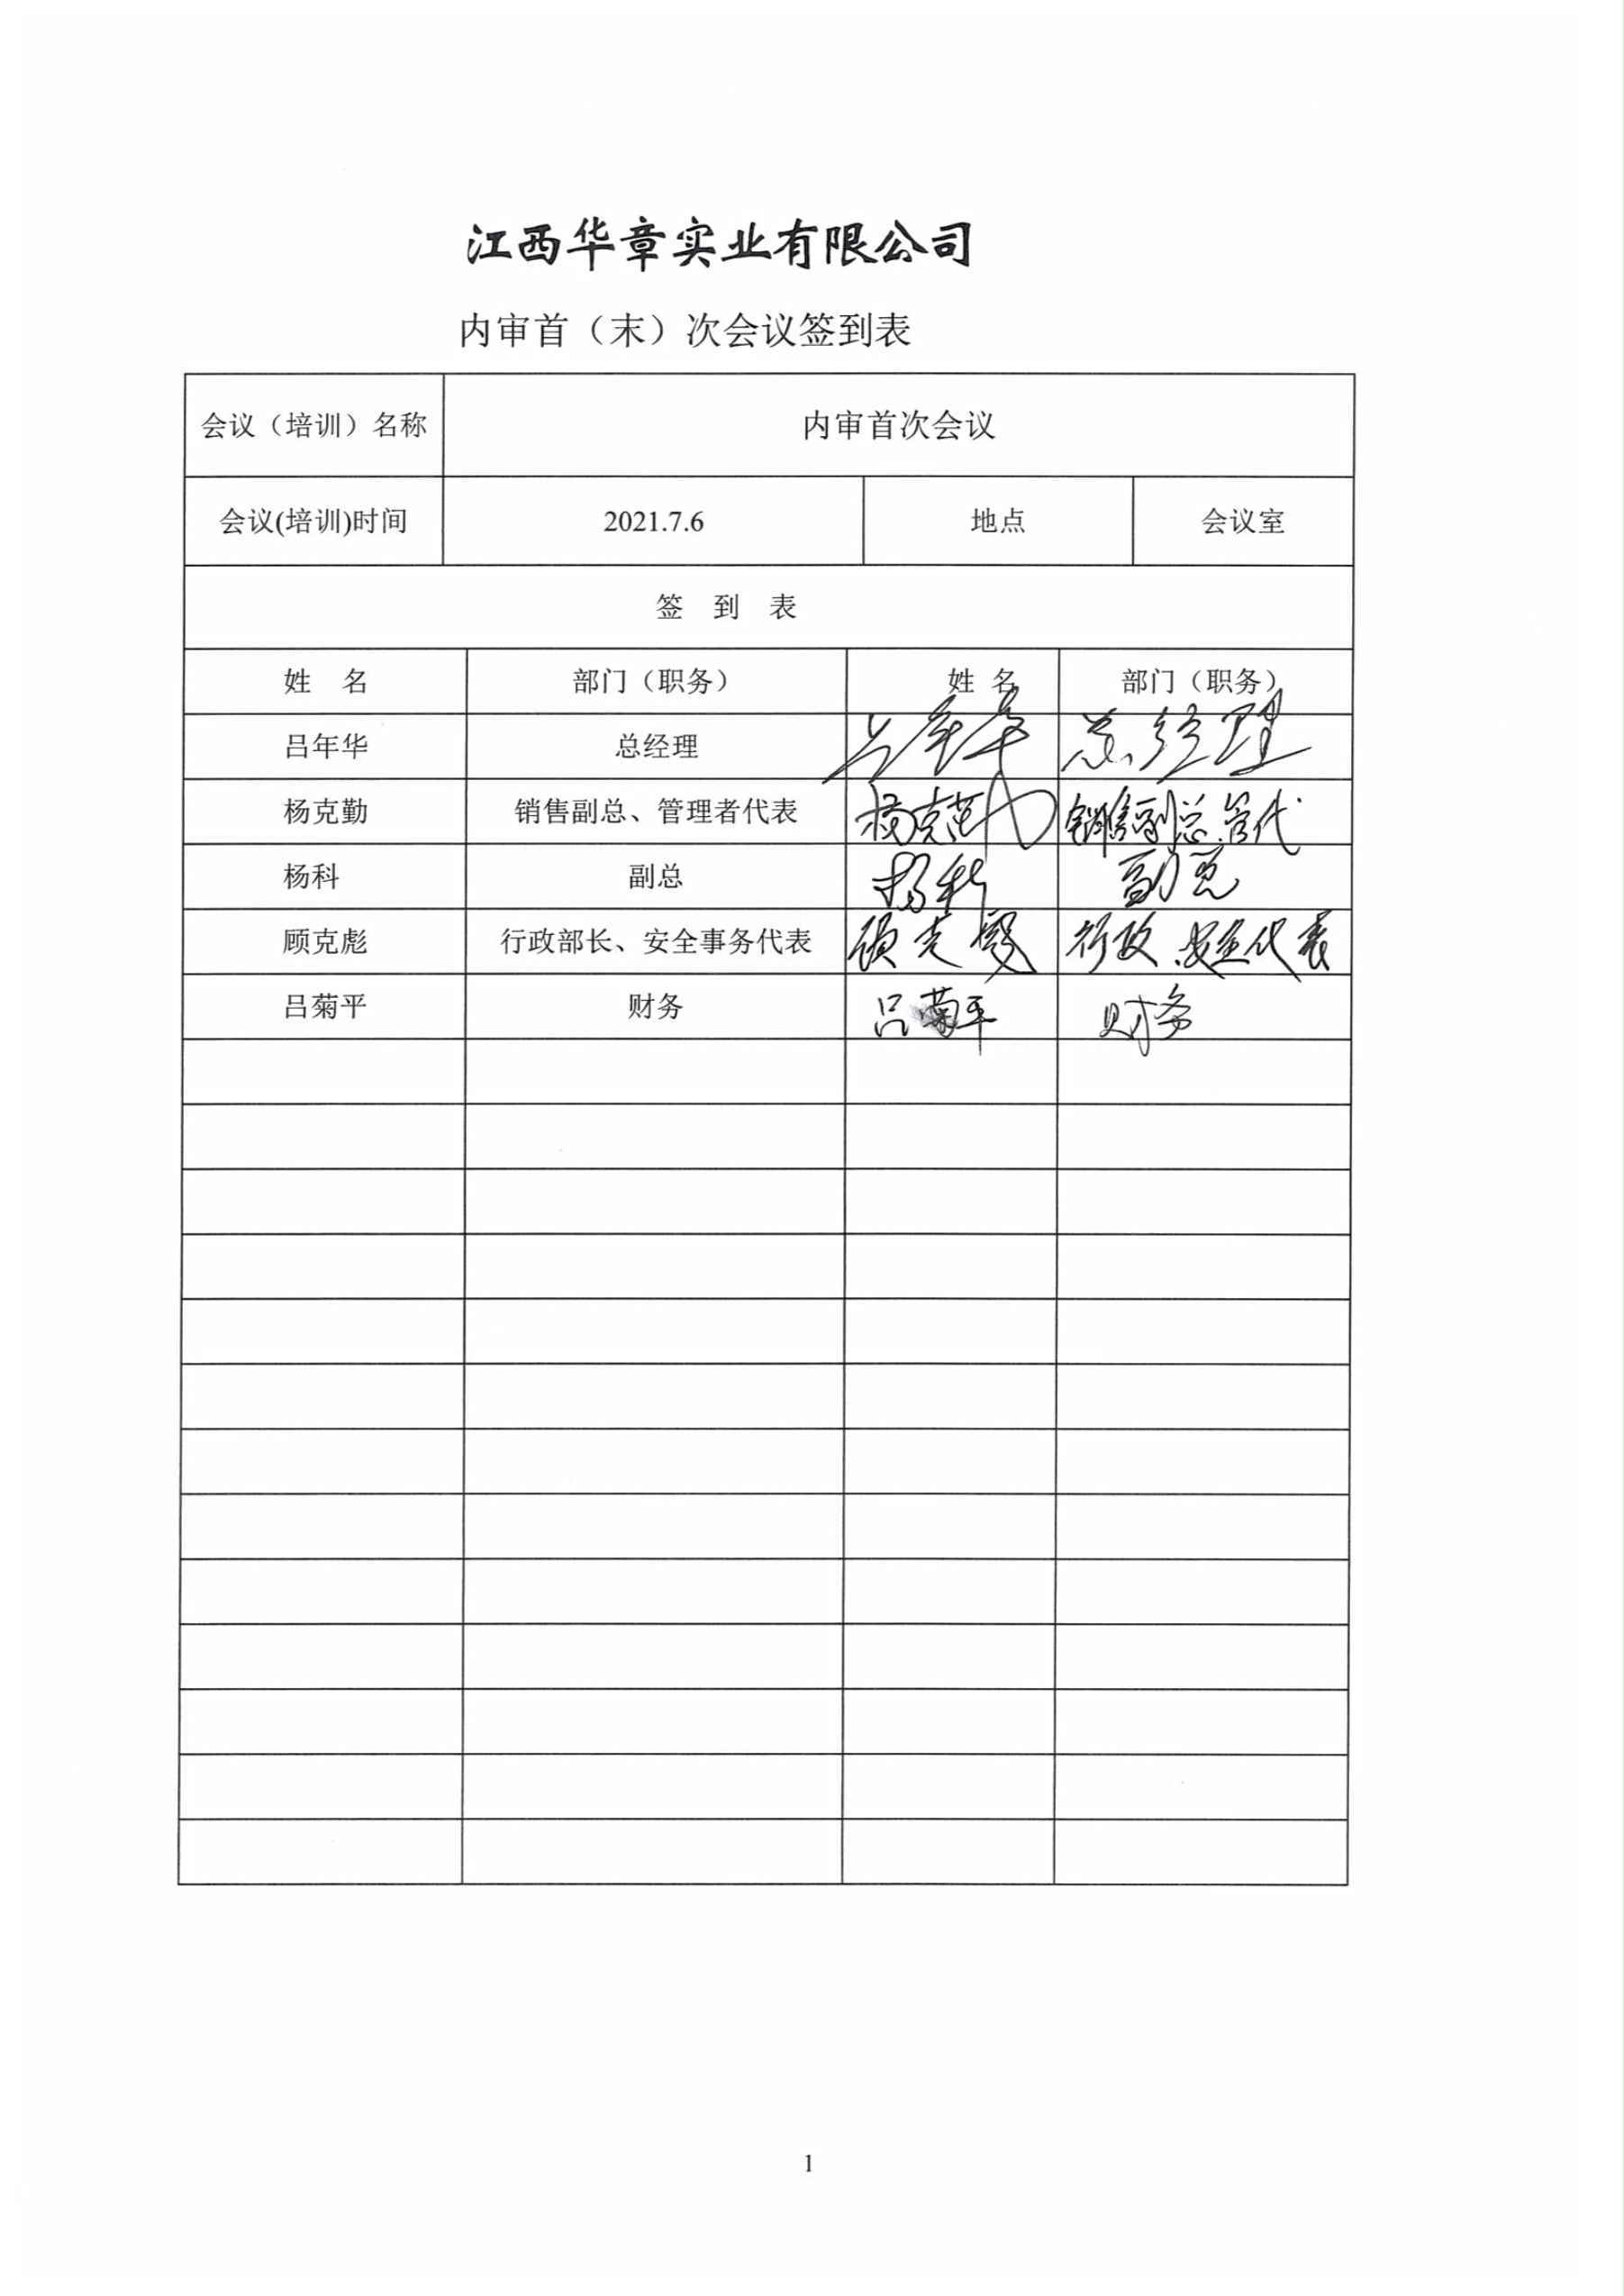 江西华章实业有限公司
内审首（末）次会议签到表
会议（培训）名称 内审首次会议
会议(培训)时间 2021.7.6 地点 会议室
签 到 表
姓 名 部门（职务） 姓 名 部门（职务）
吕年华 总经理 吕年华 总经理
杨克勤 销售副总、管理者代表 杨克勤 销售副总、管代
杨科 副总 杨科 副总
顾克彪 行政部长、安全事务代表 顾克彪 行政、安全代表
吕菊平 财务 吕菊平 财务
1